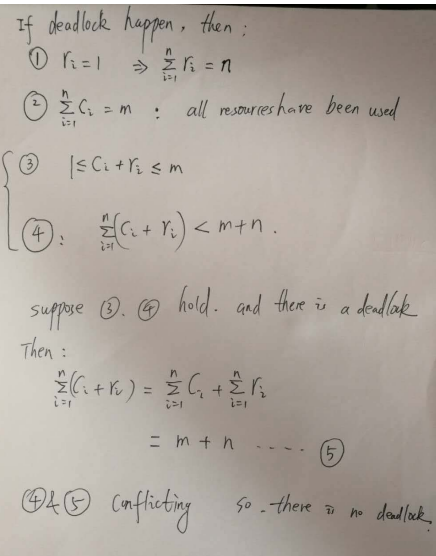 If deadlock happen, then :
① r_i = 1 ⇒ \sum_{i=1}^{n} r_i = n
② \sum_{i=1}^{n} C_i = m : all resources have been used
③ 1 ≤ C_i + r_i ≤ m
④ : \sum_{i=1}^{n} (C_i + r_i) < m + n .
suppose ③. ④ hold. and there is a deadlock
Then :
\sum_{i=1}^{n} (C_i + r_i) = \sum_{i=1}^{n} C_i + \sum_{i=1}^{n} r_i
= m + n ..... ⑤
④ & ⑤ conflicting so. there is no deadlock.